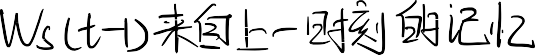 Ws(t-1)来自上一时刻的记忆